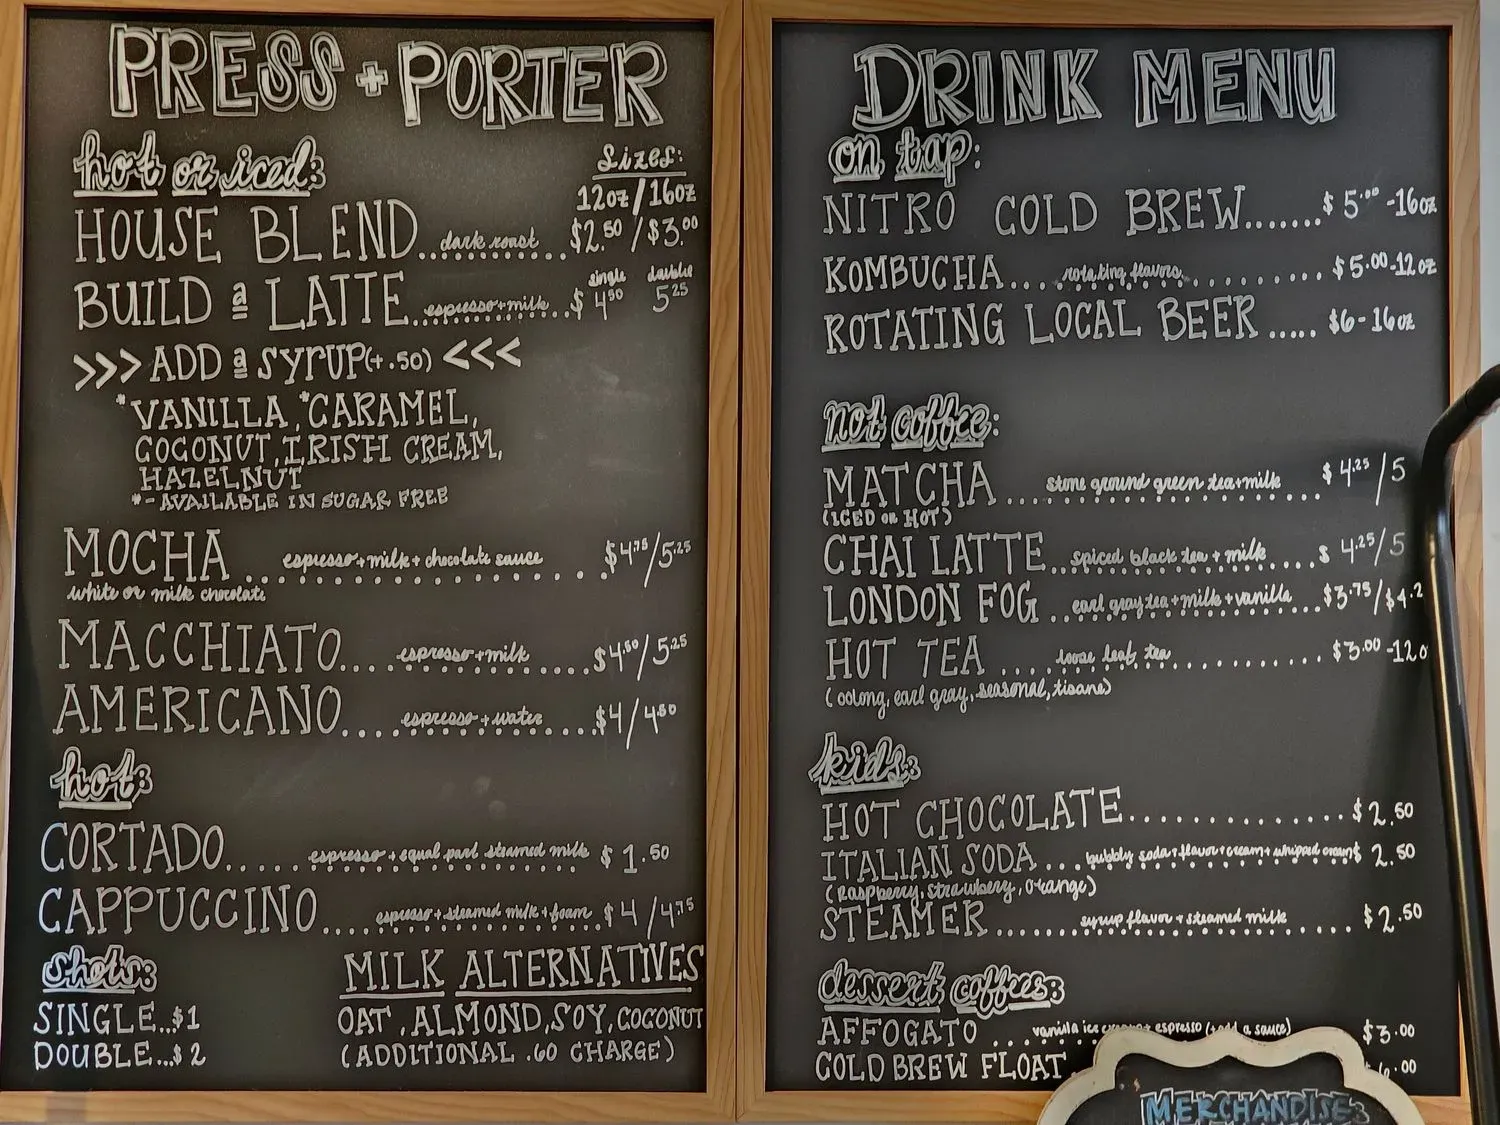 PRESS + PORTER
hot or iced:
Sizes:
12oz/16oz
HOUSE BLEND...dark roast...$2.50/$3.00
single double
BUILD a LATTE...espresso+milk...$4.50 5.25
>>> ADD a SYRUP(+.50) <<<
*VANILLA, *CARAMEL,
COCONUT, IRISH CREAM,
HAZELNUT
*-AVAILABLE IN SUGAR FREE
MOCHA...espresso+milk+chocolate sauce...$4.75/5.25
white or milk chocolate
MACCHIATO...espresso+milk...$4.50/5.25
AMERICANO...espresso+water...$4/4.50
hot:
CORTADO...espresso+equal part steamed milk $1.50
CAPPUCCINO...espresso+steamed milk+foam...$4/4.75
shots:
SINGLE...$1
DOUBLE...$2
MILK ALTERNATIVES
OAT, ALMOND, SOY, COCONUT
(ADDITIONAL .60 CHARGE)
DRINK MENU
on tap:
NITRO COLD BREW.......$5.00-16oz
KOMBUCHA....rotating flavors...........$5.00-12oz
ROTATING LOCAL BEER.....$6-16oz
not coffee:
MATCHA....stone ground green tea+milk...$4.25/5
(ICED OR HOT)
CHAI LATTE...spiced black tea+milk...$4.25/5
LONDON FOG...earl gray tea+milk+vanilla...$3.75/$4.2
HOT TEA....loose leaf tea............$3.00-12o
(oolong, earl gray, seasonal, tisane)
kids:
HOT CHOCOLATE..............$2.50
ITALIAN SODA...bubbly soda+flavor+cream+whipped cream $2.50
(Raspberry, strawberry, orange)
STEAMER.......syrup flavor+steamed milk....$2.50
dessert coffees:
AFFOGATO...vanilla ice cream+espresso (+add a sauce) $3.00
COLD BREW FLOAT .00
MERCHANDISE: